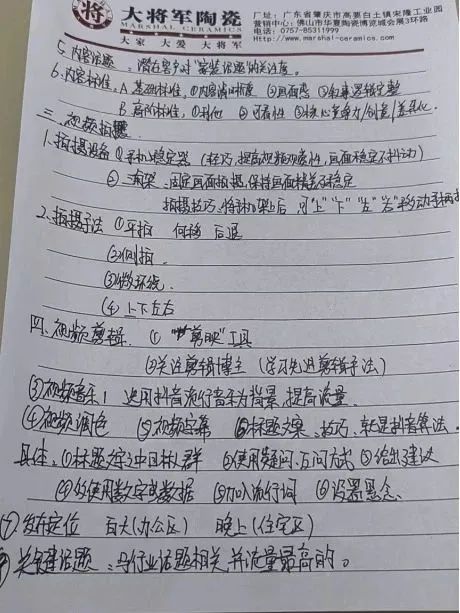 大将军陶瓷
MARSHAL CERAMICS
大家 大爱 大将军
厂址：广东省肇庆市高要白土镇宋隆工业园
营销中心：佛山市华夏陶瓷博览城会展3座
电话：0757-85311999
http://www.marshal-ceramics.com
5. 内容话题、潜在客户对"家装话题"的关注度。
6. 内容标准、A 基础标准，①内容清晰度 ②画面感 ③叙事逻辑完整
B. 高阶标准，①利他 ② 可看性 ③核心竞争力/创意/差异化.
三、视频拍摄
1. 拍摄设备 ①手机稳定器（轻巧，提高视频观赏性，画面稳定不抖动）
② 三角架、固定画面拍摄，保持画面精美稳定
拍摄技巧、将手机架上后 可"上""下""左""右"移动手柄拍
2. 拍摄手法 ①平拍 前移 后退
(2)侧拍
(3)做环绕.
(4) 上下左右
四、视频剪辑. ① "剪映"工具
②关注剪辑博主 （学习先进剪辑手法）
③视频音乐！ 选用抖音流行音乐为背景，提高流量.
④视频调色 ⑤视频字幕 ⑥标题文案、技巧、就是抖音算法.
具体、①标题文字中目标人群 ②使用疑问、反问方式 ③给出建议
④巧使用数字或数据 ⑤加入流行词 ⑥设置悬念.
⑦ 发布定位 白天(办公区) 晚上(住宅区)
关键话题、与行业话题相关，并流量最高的。